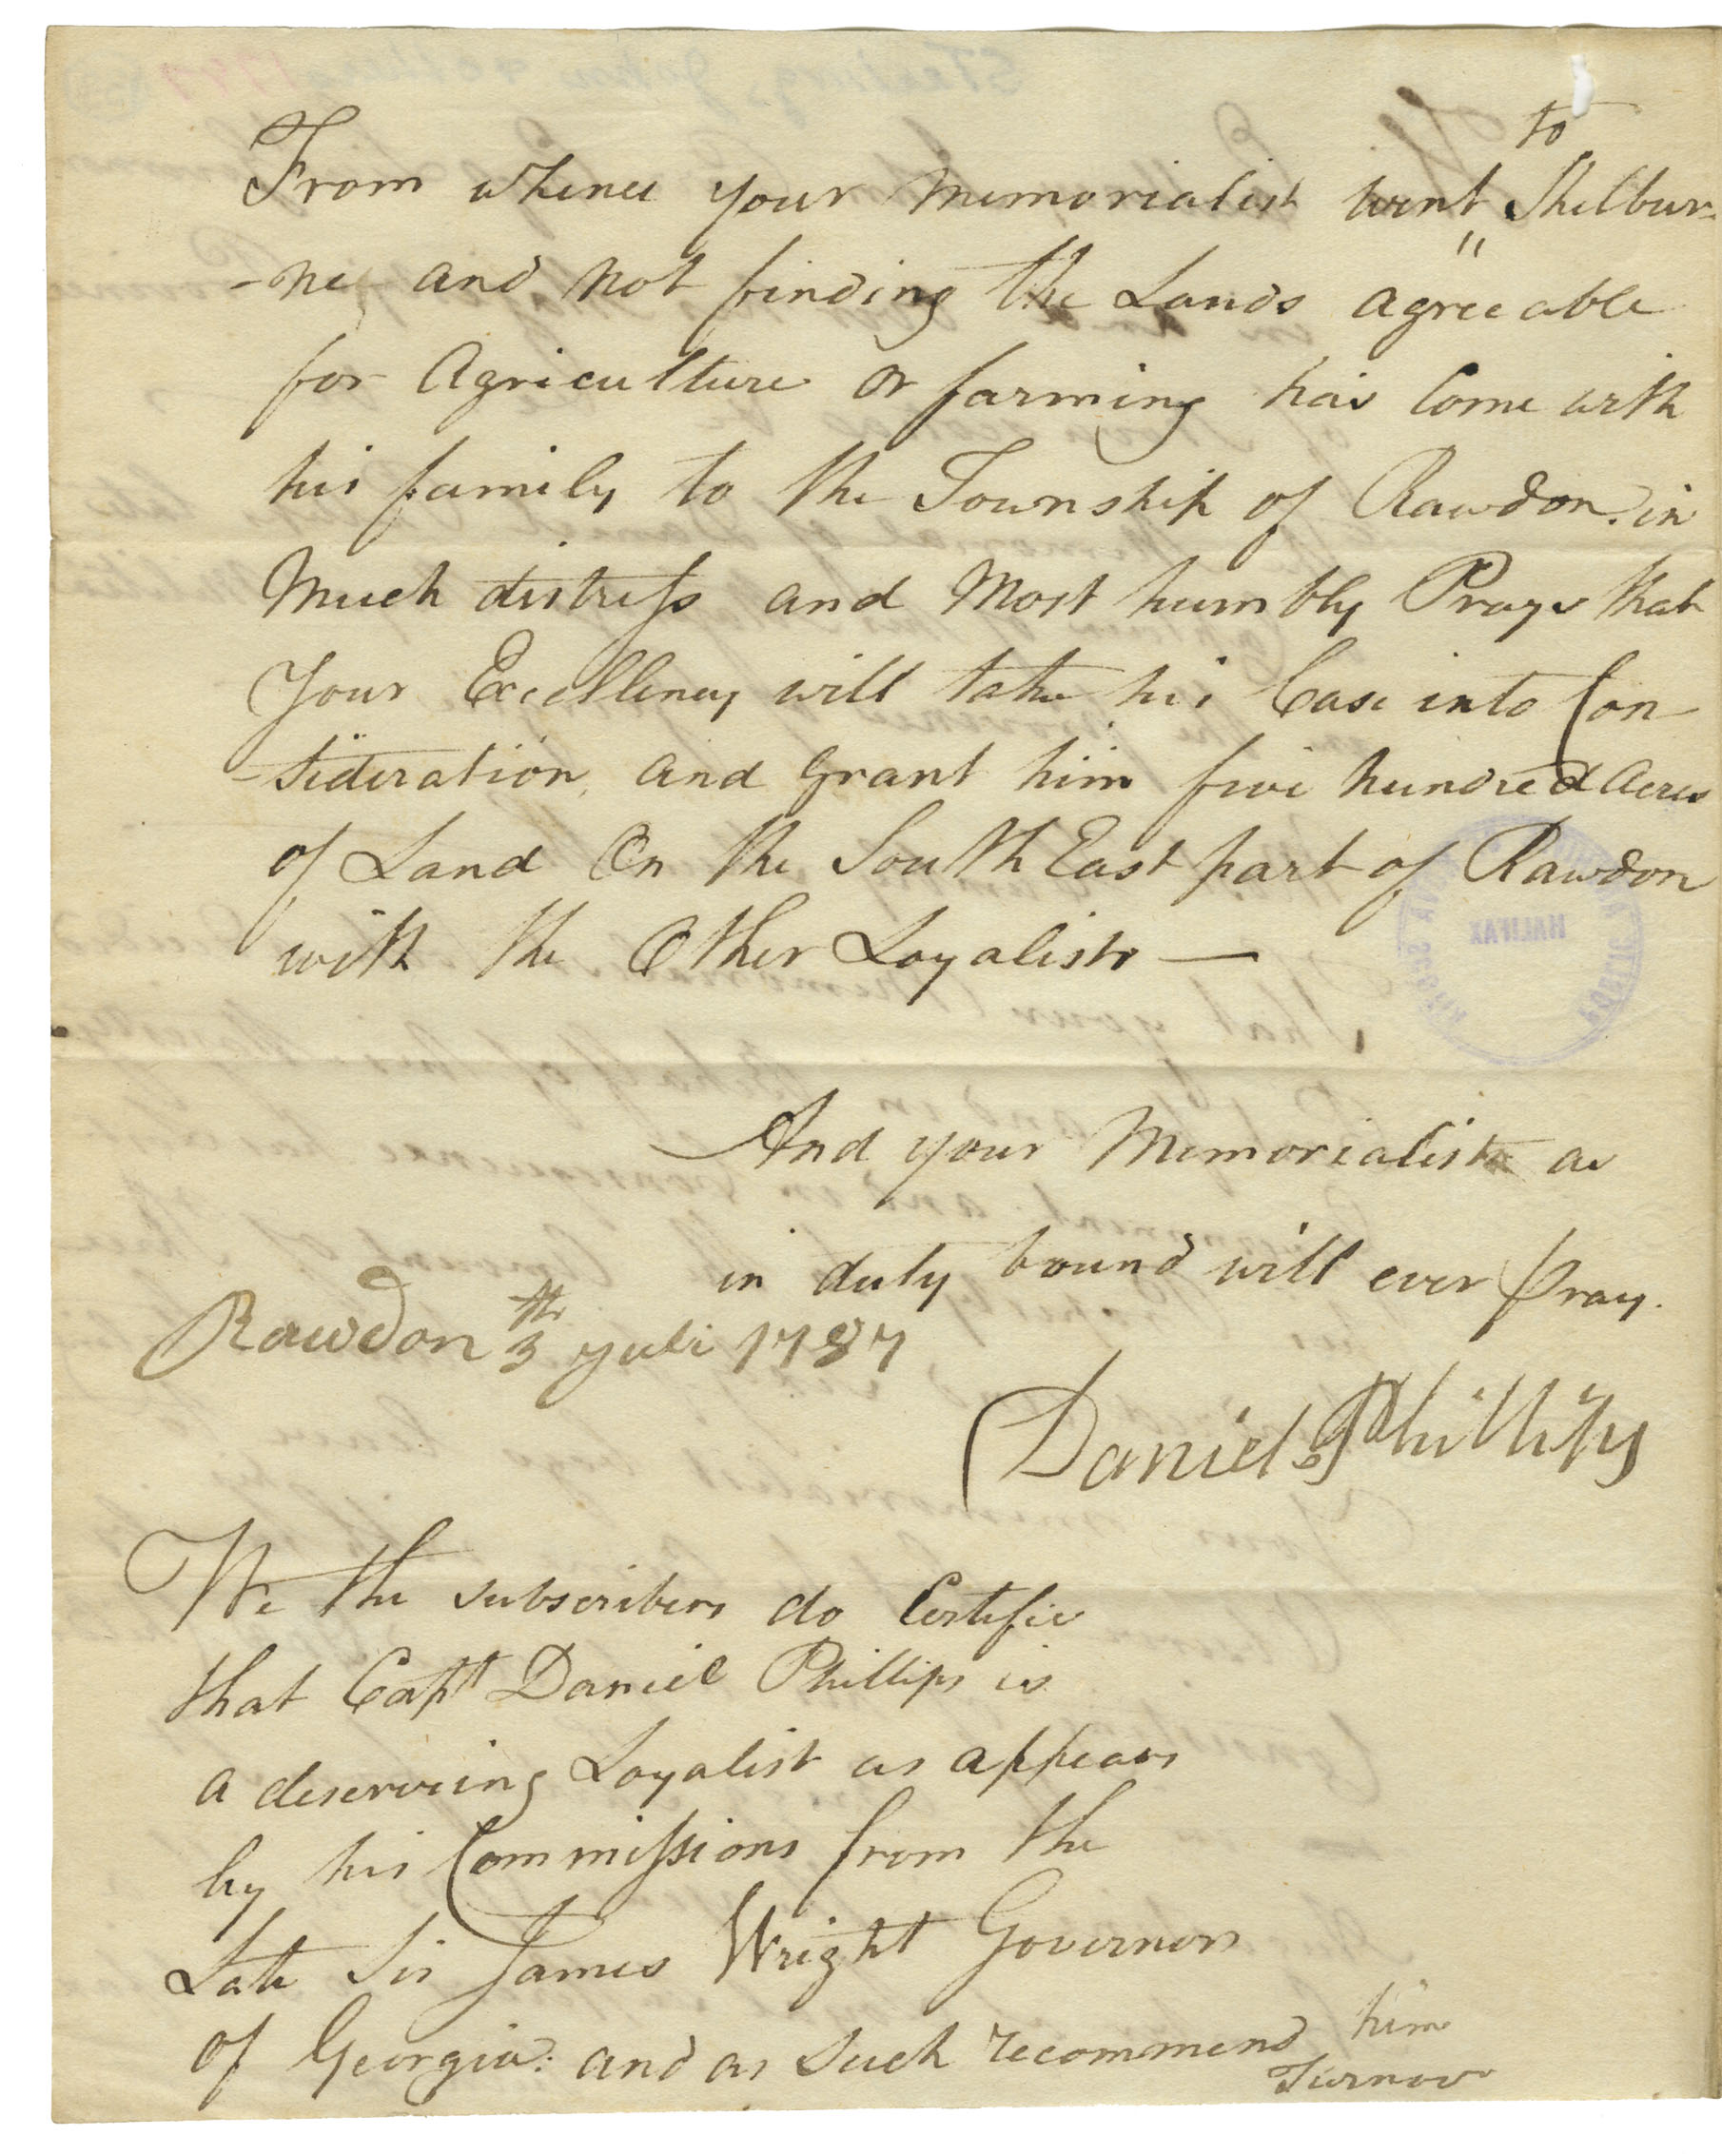 From whence your Memorialist went to Shelbur-
-ne, and not finding the Lands agreeable
for Agriculture or farming has Come with
his family to the Township of Rawdon. in
Much distress and Most humbly Prays that
Your Excellency will take his Case into Con
-sideration, and Grant him five hundred Acres
of Land On the South East part of Rawdon
with the Other Loyalists —
And your Memorialist as
in duty bound will ever Pray.
Rawdon 3th Juli 1787
Daniel Phillips
We the subscribers do Certifie
that Capt Daniel Phillips is
a deserveing Loyalist as appears
by his Commissions from the
Late Sir James Wright Governor
of Georgia: and as Such recommend him
Turnover
HALIFAX